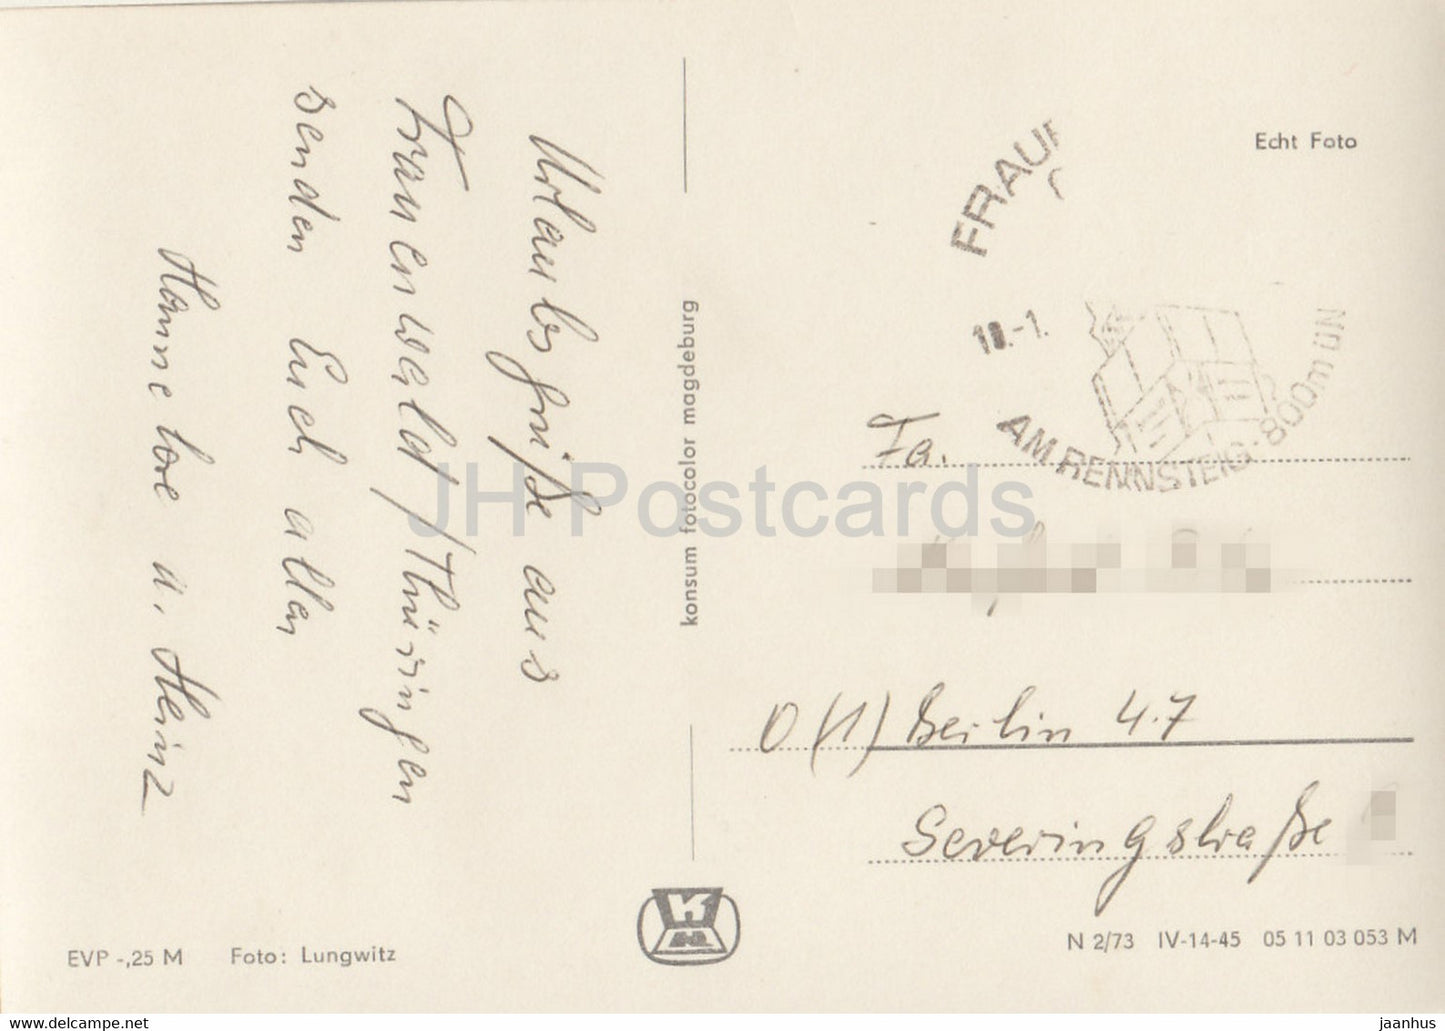 Urlaubsgrüße aus
Frauenwald/Thüringen
senden Euch allen
Hannelore u. Heinz
konsum fotocolor magdeburg
Echt Foto
FRAU
10.-1.
AM RENNSTEIG·800m ÜN
Fa.
O (1) Berlin 47
Severingstraße
EVP -,25 M Foto: Lungwitz
N 2/73 IV-14-45 05 11 03 053 M
JH Postcards
www.delcampe.net
jaanhus